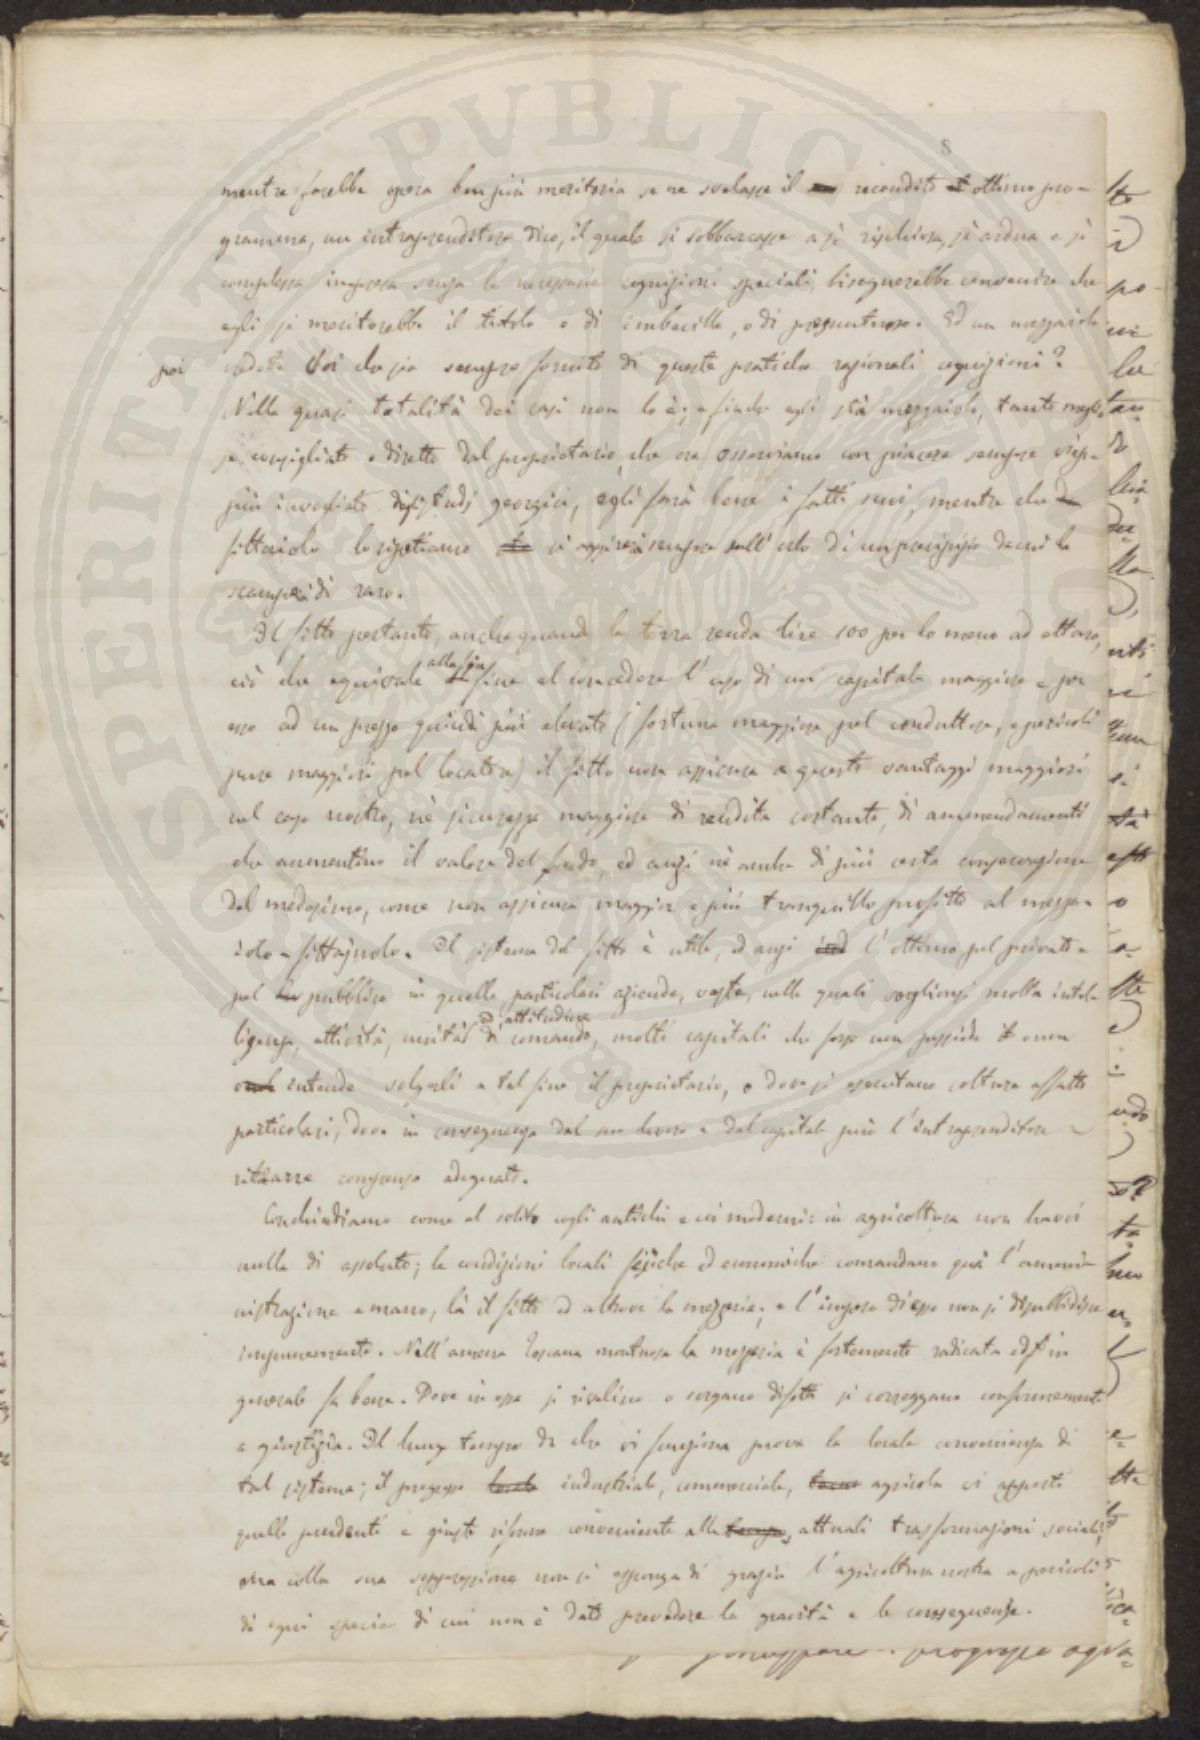 8
mentre farebbe opera ben più meritoria se ne svelasse il recondito ottimo pro-
gramma, un intraprenditore dico, il quale si sobbarcasse a sì rischiosa, sì ardua e sì
complessa impresa senza le necessarie cognizioni speciali, bisognerebbe convenire che
egli si meriterebbe il titolo o di imbecille, o di presuntuoso. Ed un mezzaiolo
poi credete Voi che sia sempre fornito di queste pratiche razionali cognizioni?
Nella quasi totalità dei casi non lo è; e finche egli stà mezzaiolo, tanto meglio
se consigliato e diretto dal proprietario, che ora osserviamo con piacere sempre viep-
più invogliato degli studj georgici, egli farà bene i fatti suoi, mentre che da
fittaiolo lo ripetiamo si aggirerà sempre sull' orlo di un precipizio da cui lo
scamperà di raro.
Il fitto pertanto, anche quando la terra renda lire 100 per lo meno ad ettaro,
ciò che equivale alla fin fine al concedere l' uso di un capitale maggiore e per
esso ad un prezzo quindi più elevato (fortuna maggiore pel conduttore, e pericoli
pure maggiori pel locatore) il fitto non assicura a questi vantaggi maggiori
nel caso nostro, nè sicurezza maggiore di rendita costante, di ammendamenti
che aumentino il valore del fondo, ed anzi nè anche di più certa conservazione
del medesimo, come non assicura maggior e più tranquillo profitto al mezza-
iolo-fittajuolo. Il sistema del fitto è utile, ed anzi l' ottimo pel privato e
pel pubblico in quelle particolari aziende, vaste, nelle quali voglionsi molta intel-
ligenza, attività, unità di comando, ed attitudine molti capitali che forse non possiede o non
intende volgerli a tal fine il proprietario, o dove si esercitano colture affatto
particolari, dove in conseguenza del suo lavoro e del capitale può l' intraprenditore
ritrarre compenso adeguato.
Conchiudiamo come al solito cogli antichi e coi moderni: in agricoltura non havvi
nulla di assoluto; le condizioni locali fisiche ed economiche comandano quà l' ammi-
nistrazione a mano, là il fitto ed altrove la mezzeria; e l' impero d'esse non si disubbidisce
impunemente. Nell' amena Toscana montuosa la mezzeria è fortemente radicata ed in
generale fa bene. Dove in essa si risalino o sorgano difetti si correggano conformemente
a giustizia. Il lungo tempo da che vi funziona prova la locale convenienza di
tal sistema; il progresso industriale, commerciale, agricola vi apporti
quelle prudenti e giuste riforme convenienti alle attuali trasformazioni sociali,
ma colla sua soppressione non si esponga di grazia l' agricoltura nostra a pericoli
di ogni specie di cui non è dato prevedere la gravità e le conseguenze.
progresso agra-